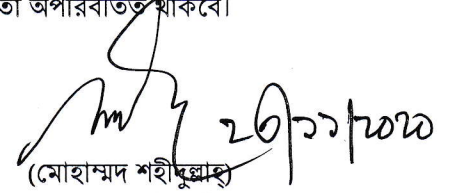 তা অপরিবর্তিত থাকবে।
২৩/১১/২০২০
(মোহাম্মদ শহীদুল্লাহ্)